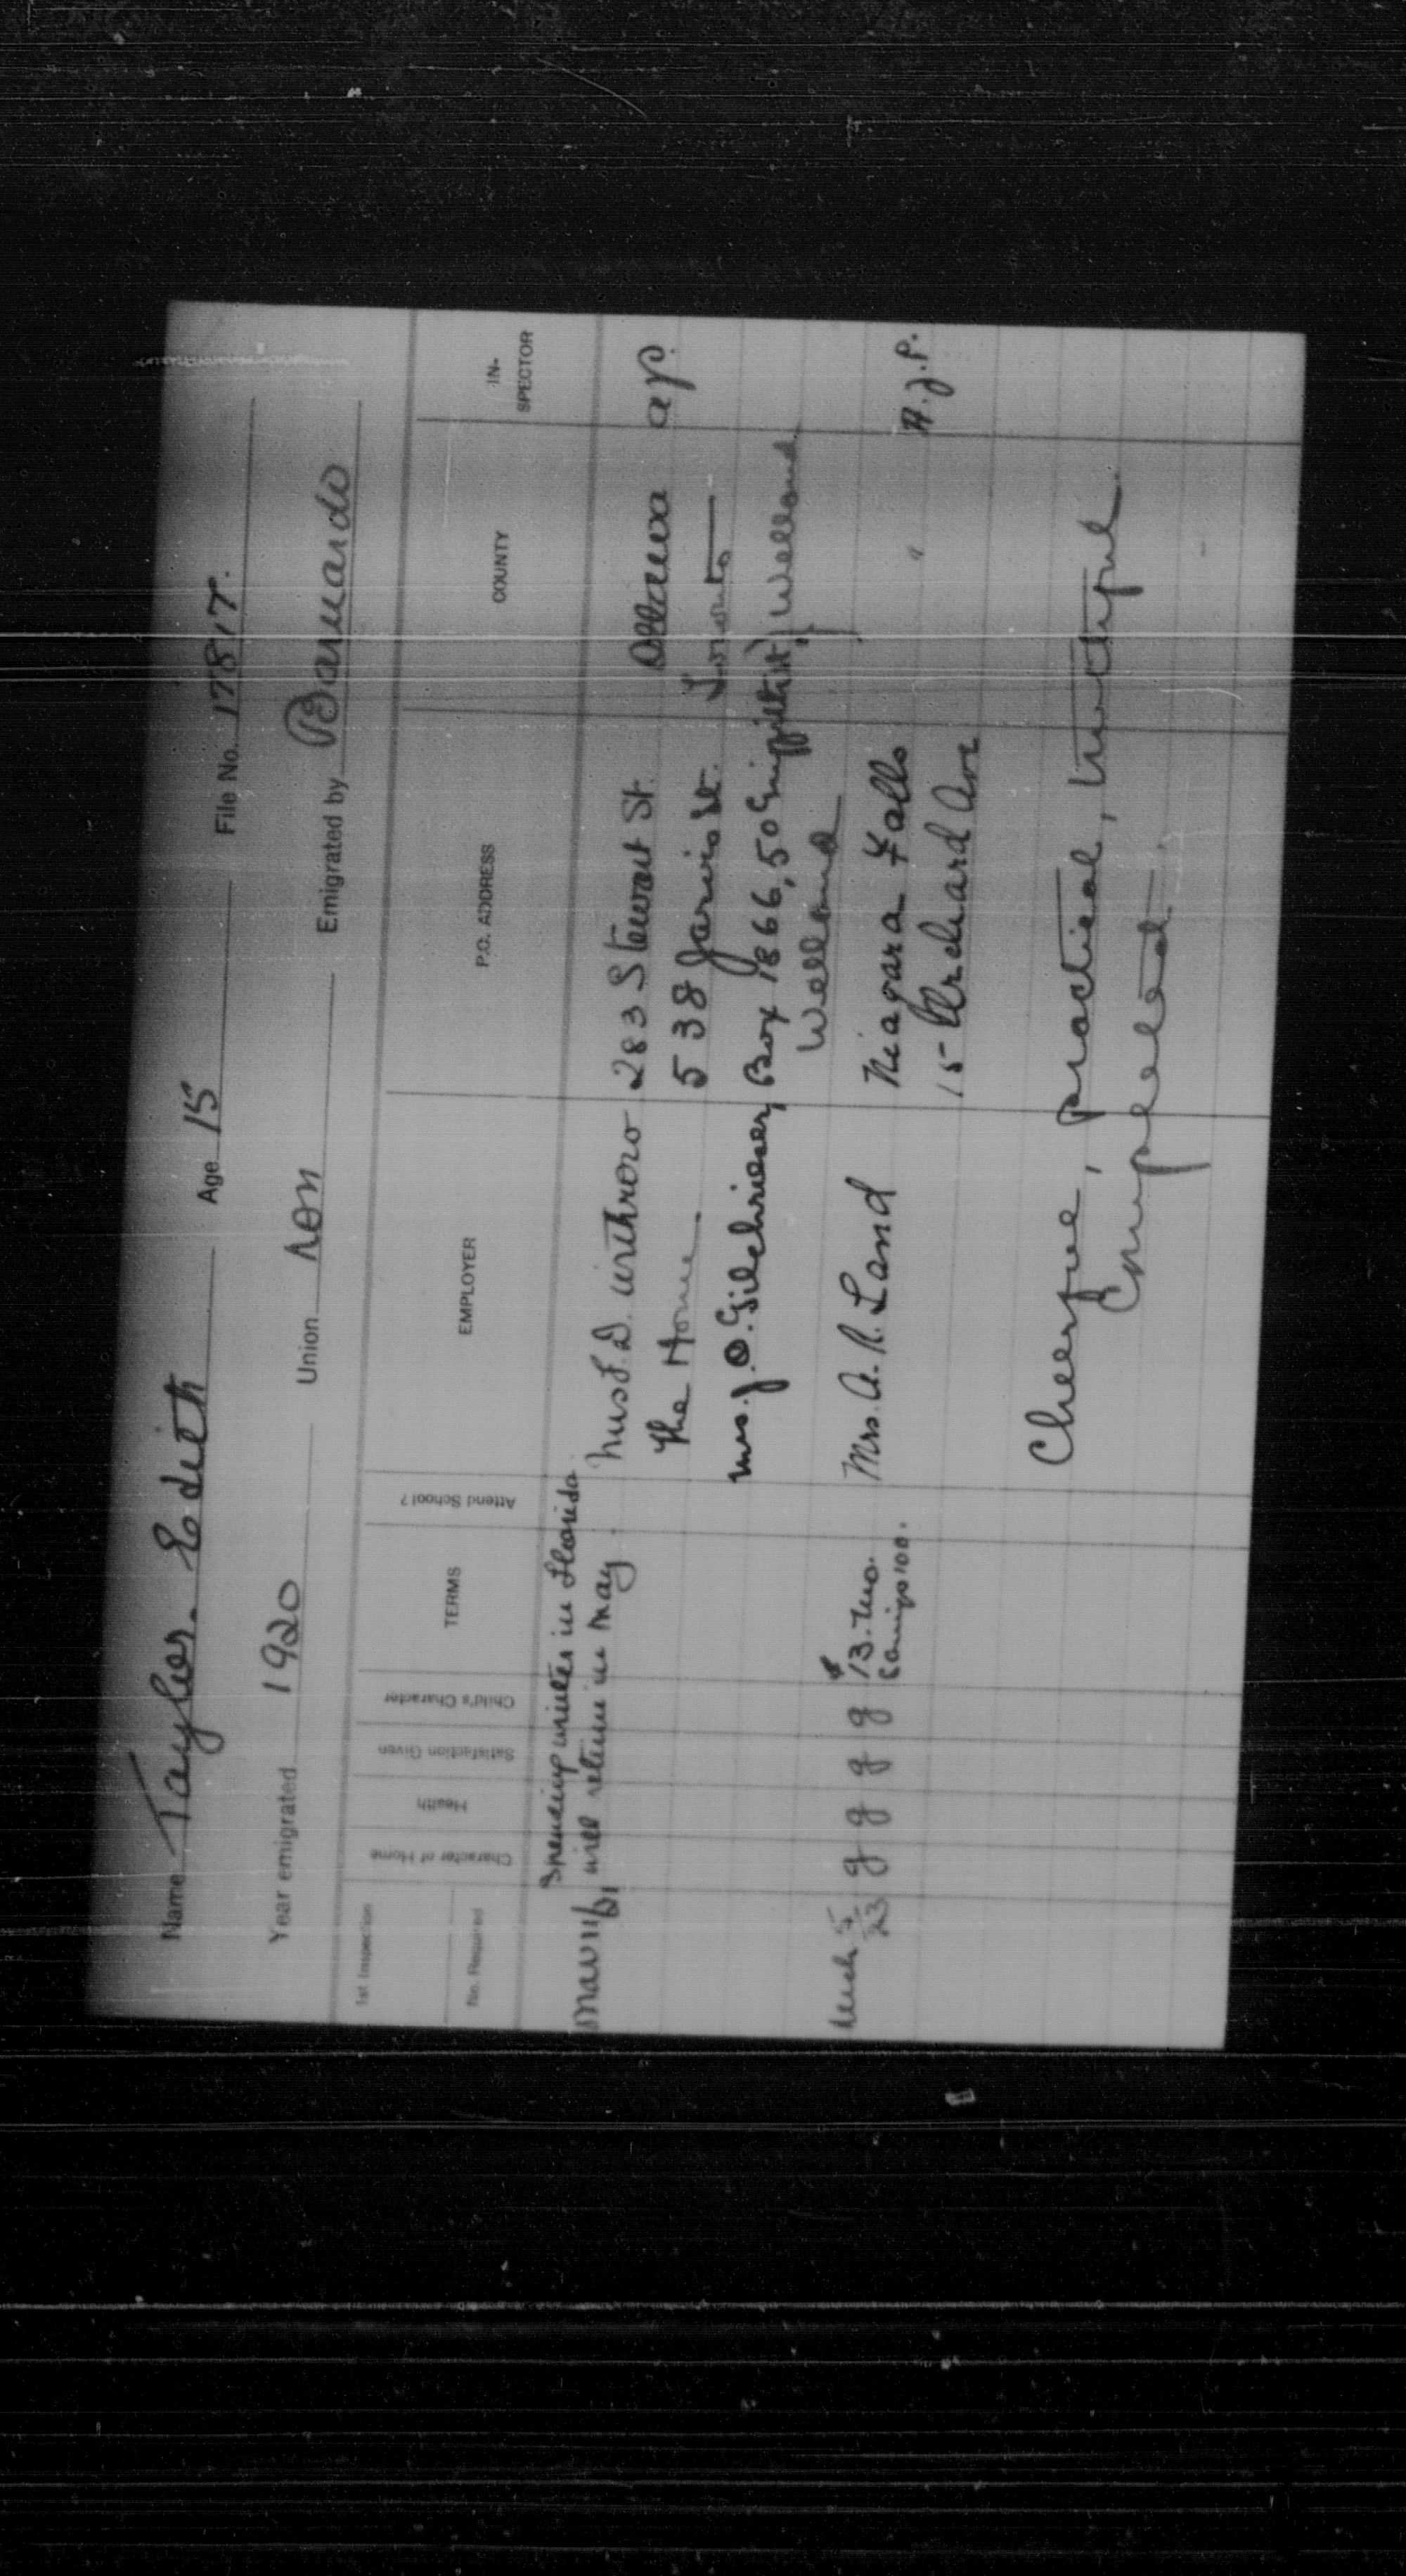 Name Taylor. Edith Age 15 File No. 17817.
Year emigrated 1920 Union non Emigrated by Barnardo
1st Inspection
No. Required
Character of Home Health Satisfaction Given Child's Character TERMS Attend School? EMPLOYER P.O. ADDRESS COUNTY IN-SPECTOR
Spending winter in Florida.
will return in May Mrs F. D. 283 Stewart St. Ottawa ap.
The Home 538 Jarvis St. Toronto
Mrs. J. O. Box 1866, 50 Welland
Welland
March 5/23 g g g g $13. mo. Mrs. A. R. Land Niagara Falls " H.J.P.
Savings 100. 15 Orchard Ave
Cheerful, practical, truthful.
Completed.